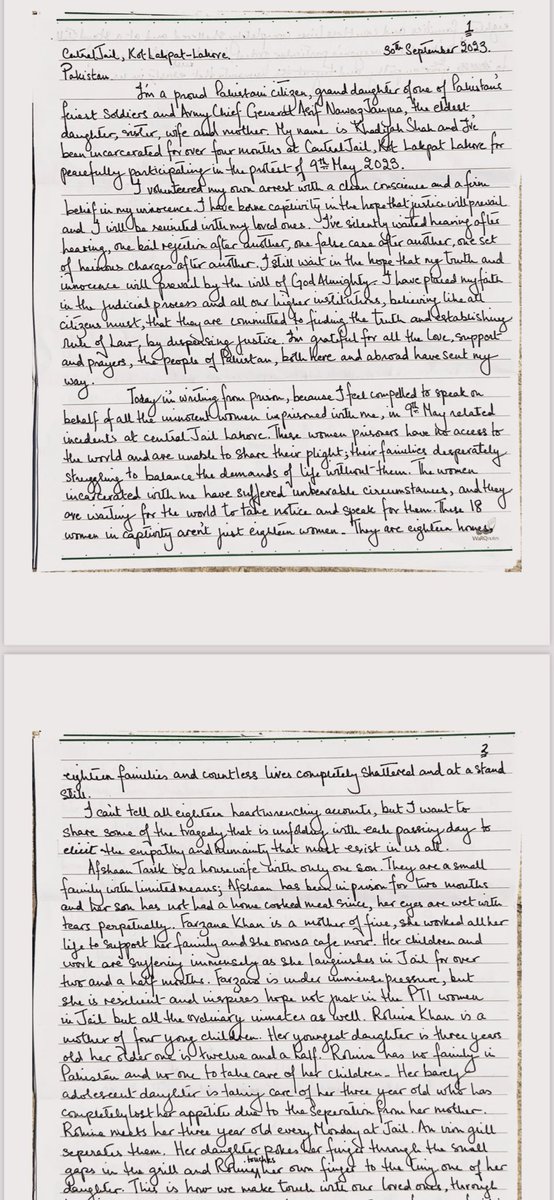 1
Central Jail, Kot Lakpat-Lahore. 30th September 2023.
Pakistan.
I'm a proud Pakistani citizen, grand daughter of one of Pakistan's
finest Soldiers and Army Chief General Asif Nawaz Janjua, the eldest
daughter, sister, wife and mother. My name is Khadijah Shah and I've
been incarcerated for over four months at Central Jail, Kot Lakpat Lahore for
peacefully participating in the protest of 9th May 2023.
I volunteered my own arrest with a clean conscience and a firm
belief in my innocence. I have borne captivity in the hope that justice will prevail
and I will be reunited with my loved ones. I've silently waited hearing after
hearing, one bail rejection after another, one false case after another, one set
of heinous charges after another. I still wait in the hope that my truth and
innocence will prevail by the will of God Almighty. I have placed my faith
in the judicial process and all our higher institutions, believing like all
citizens must, that they are committed to finding the truth and establishing
rule of Law, by dispensing justice. I'm grateful for all the love, support
and prayers, the people of Pakistan, both here and abroad have sent my
way.
Today im writing from prison, because I feel compelled to speak on
behalf of all the innocent women imprisoned with me, in 9th May related
incidents at central Jail Lahore. These women prisoners have no access to
the world and are unable to share their plight; their families desperately
struggling to balance the demands of life without them. The women
incarcerated with me have suffered unbearable circumstances, and they
are waiting for the world to take notice and speak for them. These 18
women in captivity aren't just eighteen women. They are eighteen homes
2
eighteen families and countless lives completely shattered and at a stand
still.
I can't tell all eighteen heartwrenching accounts, but I want to
share some of the tragedy that is unfolding with each passing day to
elicit the empathy and humanity that must exist in us all.
Afshaan Tarik is a housewife with only one son. They are a small
family with limited means; Afshaan has been in prison for two months
and her son has not had a home cooked meal since, her eyes are wet with
tears perpetually. Farzana Khan is a mother of five, she worked all her
life to support her family and she owns a cafe now. Her children and
work are suffering immensely as she languishes in Jail for over
two and a half months. Farzana is under immense pressure, but
she is resilient and inspires hope not just in the PTI women
in Jail but all the ordinary inmates as well. Rohina Khan is a
mother of four yong children. Her youngest daughter is three years
old her older one is twelve and a half. Rohina has no family in
Pakistan and no one to take care of her children. Her barely
adolescent daughter is taking care of her three year old who has
completely lost her appetite due to the seperation from her mother.
Rohina meets her three year old every Monday at Jail. An iron grill
seperates them. Her daughter pokes her finger through the small
gaps in the grill and Rohina touches her own finger to the tiny one of her
daughter. This is how we make touch with our loved ones, through